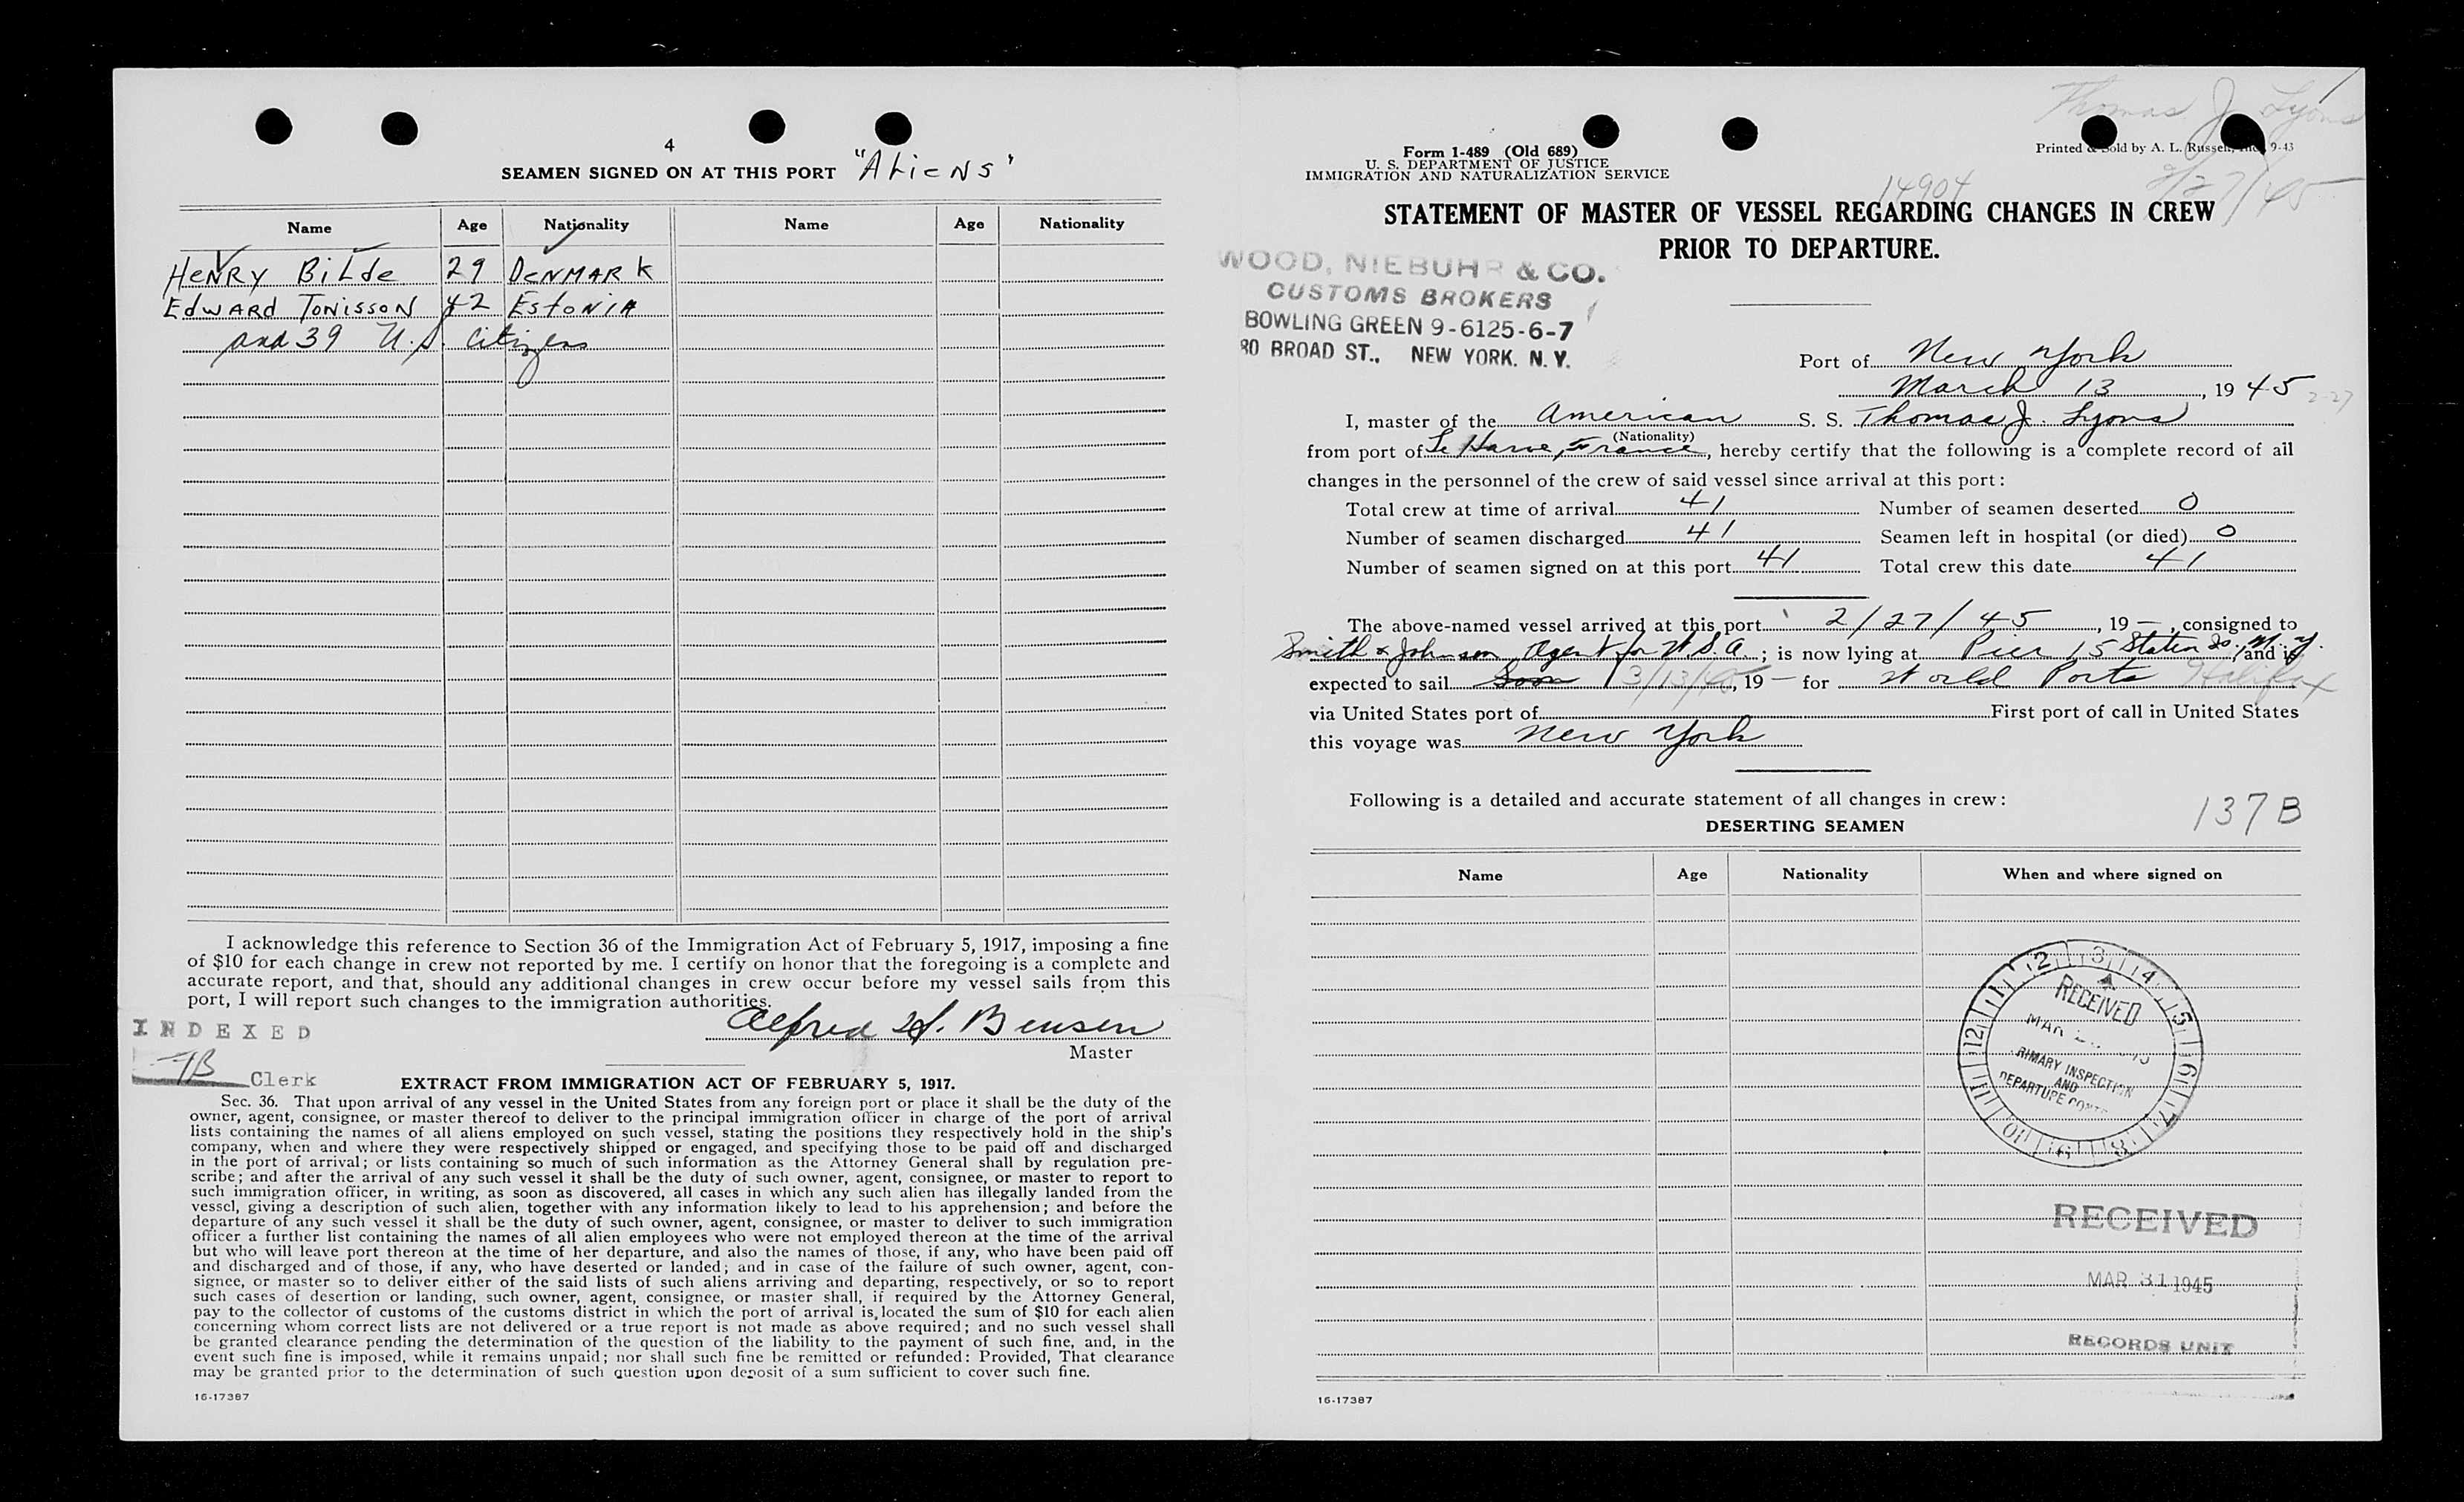 4
SEAMEN SIGNED ON AT THIS PORT "ALieNS"
Name Age Nationality Name Age Nationality
HeNRY BiLde 29 DeNMARK
EdWARd ToNissoN 42 EstoNiA
and 39 U.S. Citizens
I acknowledge this reference to Section 36 of the Immigration Act of February 5, 1917, imposing a fine
of $10 for each change in crew not reported by me. I certify on honor that the foregoing is a complete and
accurate report, and that, should any additional changes in crew occur before my vessel sails from this
port, I will report such changes to the immigration authorities.
INDEXED
Alfred H. Bensen
Master
Clerk
EXTRACT FROM IMMIGRATION ACT OF FEBRUARY 5, 1917.
Sec. 36. That upon arrival of any vessel in the United States from any foreign port or place it shall be the duty of the
owner, agent, consignee, or master thereof to deliver to the principal immigration officer in charge of the port of arrival
lists containing the names of all aliens employed on such vessel, stating the positions they respectively hold in the ship's
company, when and where they were respectively shipped or engaged, and specifying those to be paid off and discharged
in the port of arrival; or lists containing so much of such information as the Attorney General shall by regulation pre-
scribe; and after the arrival of any such vessel it shall be the duty of such owner, agent, consignee, or master to report to
such immigration officer, in writing, as soon as discovered, all cases in which any such alien has illegally landed from the
vessel, giving a description of such alien, together with any information likely to lead to his apprehension; and before the
departure of any such vessel it shall be the duty of such owner, agent, consignee, or master to deliver to such immigration
officer a further list containing the names of all alien employees who were not employed thereon at the time of the arrival
but who will leave port thereon at the time of her departure, and also the names of those, if any, who have been paid off
and discharged and of those, if any, who have deserted or landed; and in case of the failure of such owner, agent, con-
signee, or master so to deliver either of the said lists of such aliens arriving and departing, respectively, or so to report
such cases of desertion or landing, such owner, agent, consignee, or master shall, if required by the Attorney General,
pay to the collector of customs of the customs district in which the port of arrival is located the sum of $10 for each alien
concerning whom correct lists are not delivered or a true report is not made as above required; and no such vessel shall
be granted clearance pending the determination of the question of the liability to the payment of such fine, and, in the
event such fine is imposed, while it remains unpaid; nor shall such fine be remitted or refunded: Provided, That clearance
may be granted prior to the determination of such question upon deposit of a sum sufficient to cover such fine.
16-17387
Thomas J Lyons
2/27/45
Form 1-489 (Old 689)
U. S. DEPARTMENT OF JUSTICE
IMMIGRATION AND NATURALIZATION SERVICE
Printed & Sold by A. L. Russell, Inc. 9-43
14904
STATEMENT OF MASTER OF VESSEL REGARDING CHANGES IN CREW
PRIOR TO DEPARTURE.
WOOD, NIEBUHR & CO.
CUSTOMS BROKERS
BOWLING GREEN 9-6125-6-7
80 BROAD ST., NEW YORK, N. Y.
Port of New York
March 13, 1945 2-27
I, master of the American S. S. Thomas J. Lyons
(Nationality)
from port of Le Havre, France, hereby certify that the following is a complete record of all
changes in the personnel of the crew of said vessel since arrival at this port:
Total crew at time of arrival 41 Number of seamen deserted 0
Number of seamen discharged 41 Seamen left in hospital (or died) 0
Number of seamen signed on at this port 41 Total crew this date 41
The above-named vessel arrived at this port 2/27/45, 19 —, consigned to
Smith & Johnson, Agent for W.S.A.; is now lying at Pier 15 Staten Is. N.Y. and is
expected to sail Soon 3/13/45, 19 — for World Ports Halifax
via United States port of First port of call in United States
this voyage was New York
Following is a detailed and accurate statement of all changes in crew:
137B
DESERTING SEAMEN
Name Age Nationality When and where signed on
1 2 3 4 5 6 7 8 9 10 11 12
RECEIVED
MAR
PRIMARY INSPECTION
AND
DEPARTURE
RECEIVED
MAR 31 1945
RECORDS UNIT
16-17387